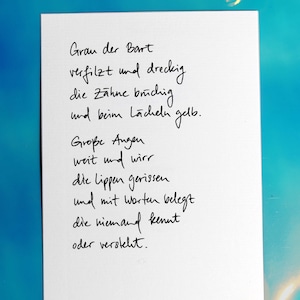 Grau der Bart
verfilzt und dreckig
die Zähne brüchig
und beim Lächeln gelb.
Große Augen
weit und wirr
die Lippen gerissen
und mit Worten belegt
die niemand kennt
oder versteht.